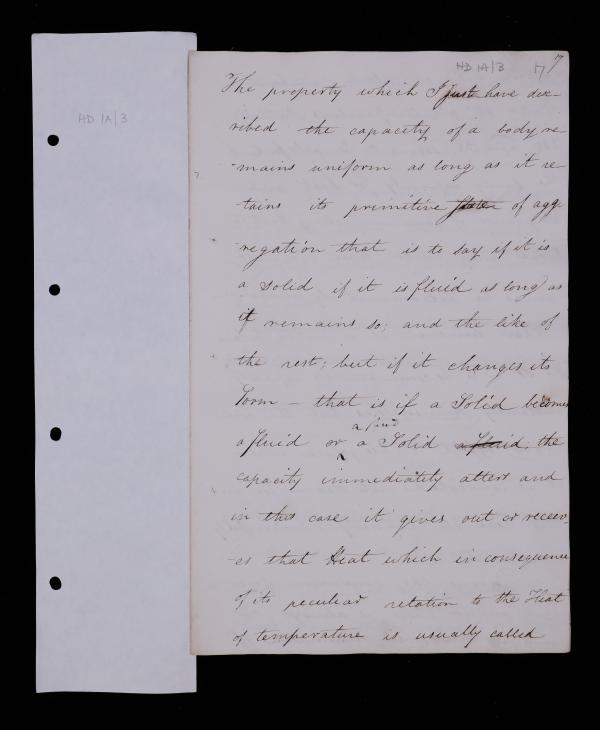 HD 1A/3
HD 1A/3 17 7
The property which I just have des-
cribed the capacity of a body re-
-mains uniform as long as it re
-tains its primitive state of agg
-regation that is to say if it is
a solid if it is fluid as long as
it remains so; and the like of
the rest; but if it changes its
Form — that is if a Solid becomes
a fluid
a fluid or a Solid a fluid; the
capacity immediately alters and
in this case it gives out or receiv-
-es that Heat which in consequence
of its peculiar relation to the Heat
of temperature is usually called